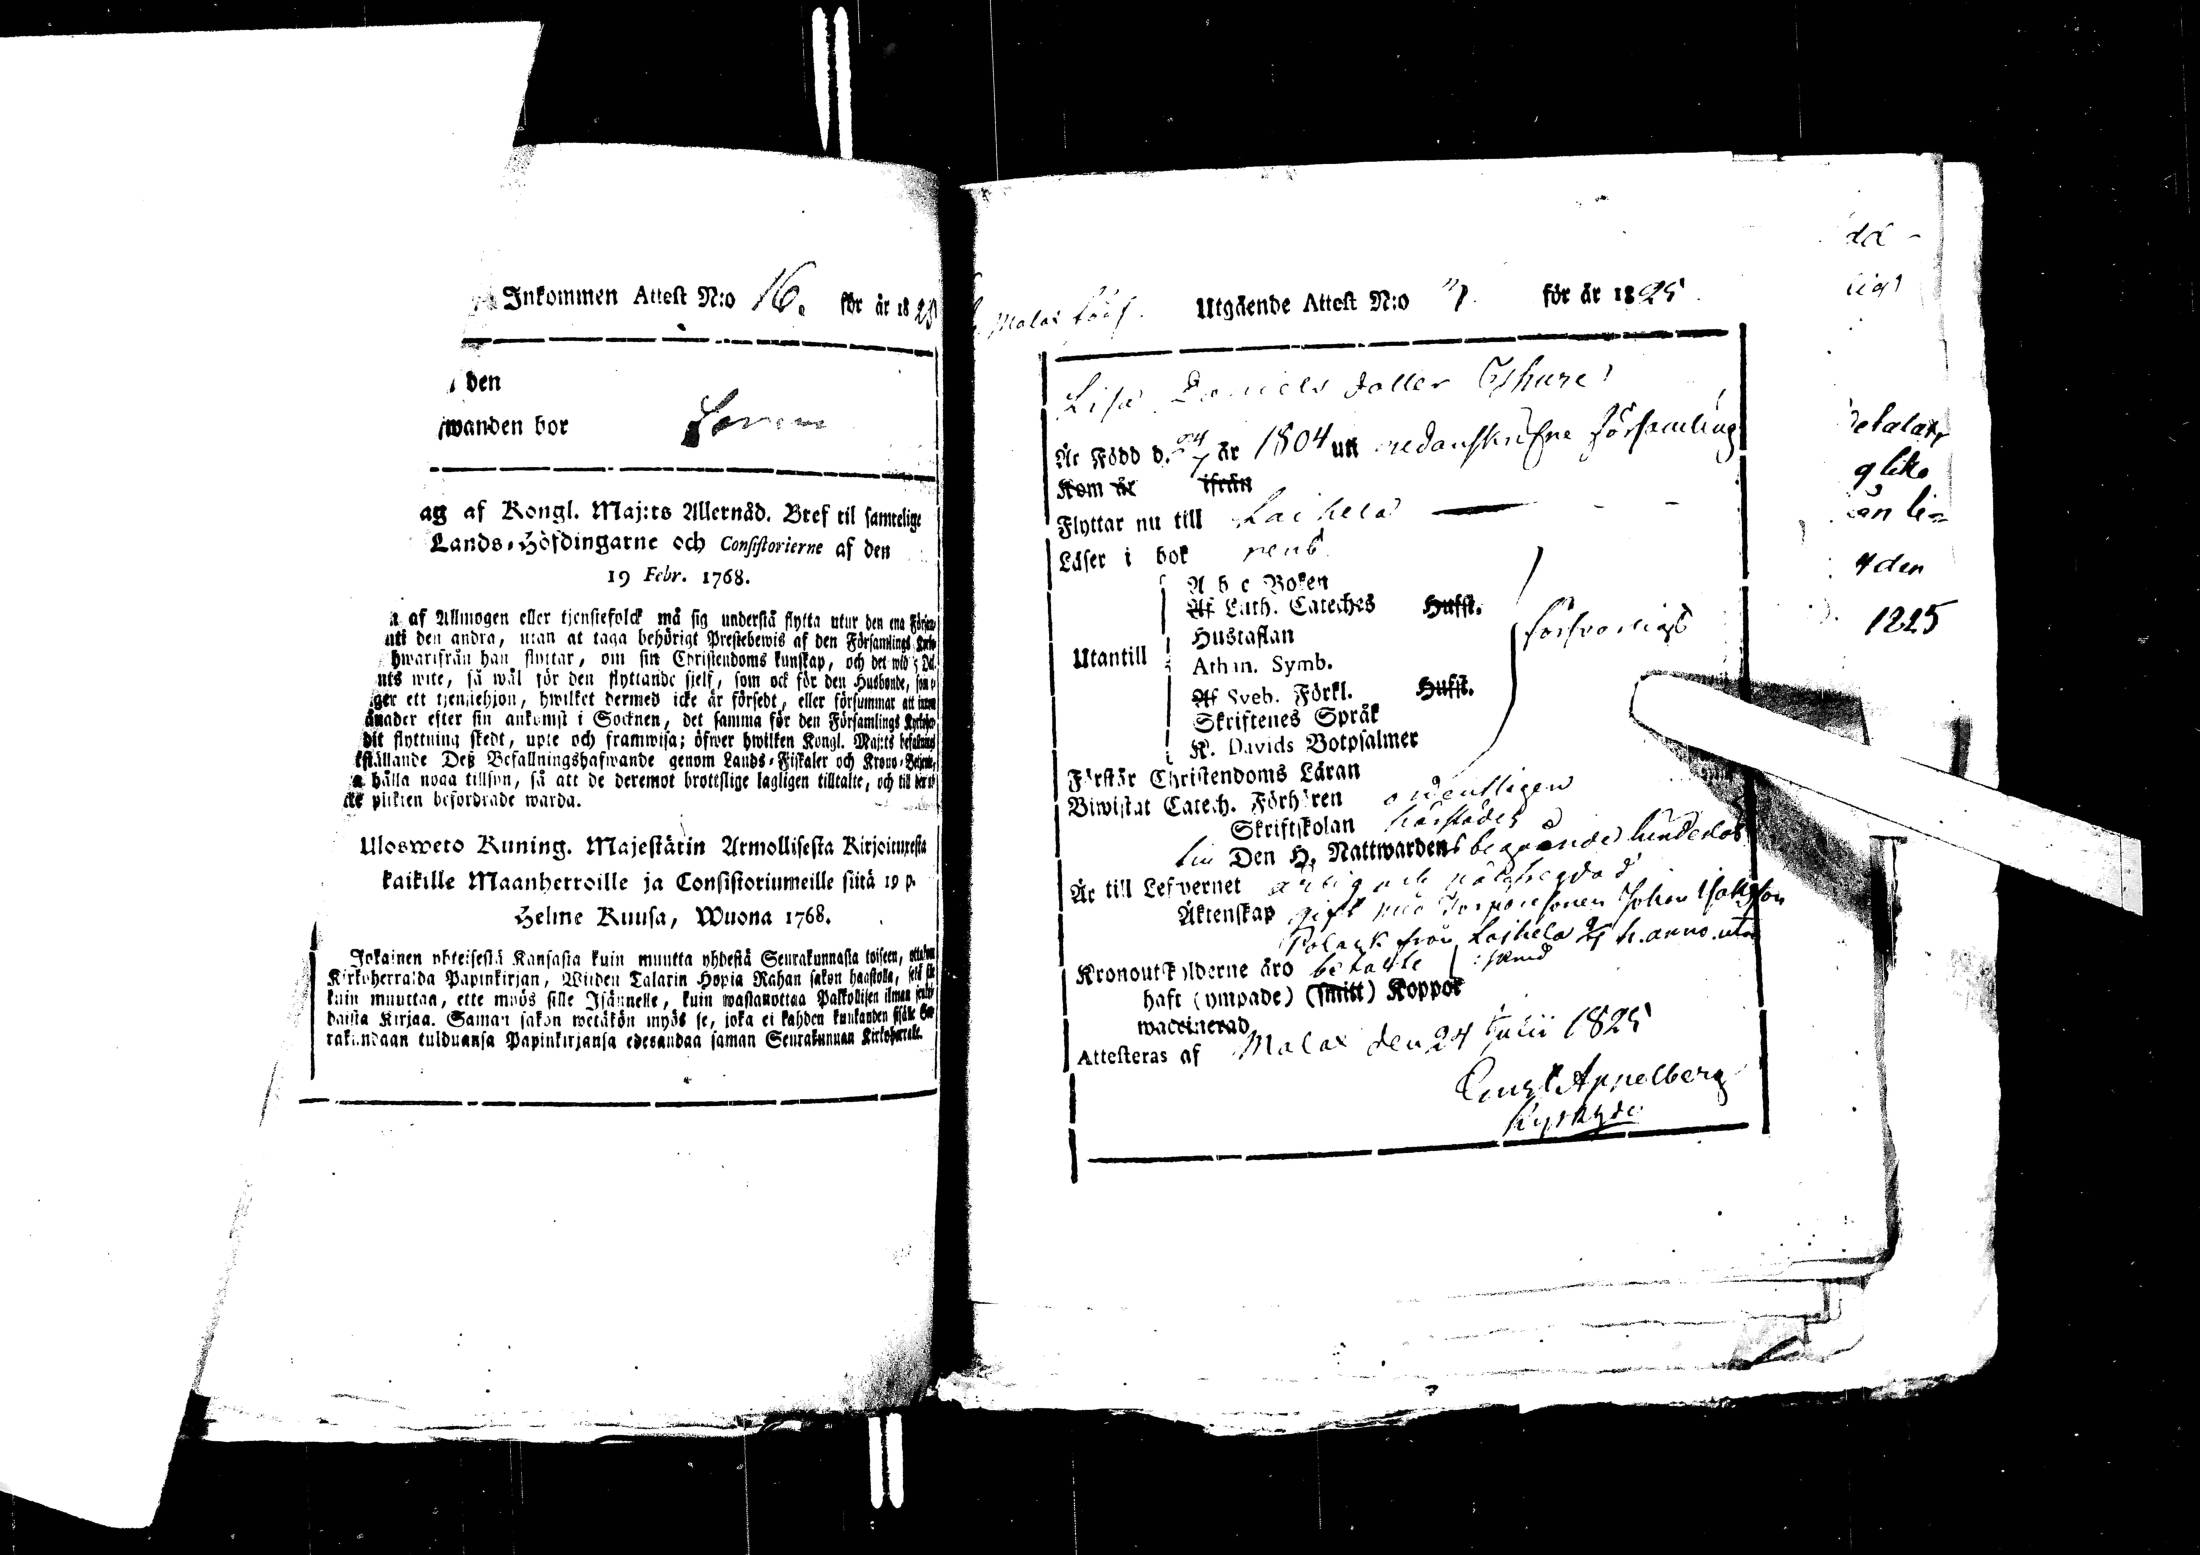 Inkommen Attest N:o 16. för år 1825
den
wanden bor
ag af Kongl. Maj:ts Allernåd. Bref til samtelige
Lands-Höfdingarne och Consistorierne af den
19 Febr. 1768.
af Allmogen eller tjenstefolck må sig understå flytta utur den ena
uti den andra, utan at taga behörigt Prestebewis af den Församlings
hwarifrån han flyttar, om sin Christendoms kunskap, och det wid 5 Dal.
nts wite, så wäl för den flyttande sjelf, som ock för den Husbonde, som
ger ett tjenstehjon, hwilket dermed icke är försedt, eller försummar att inom
ånader efter sin ankomst i Socknen, det samma för den Församlings
dit flyttning skedt, upte och framwisa; öfwer hwilken Kongl. Maj:ts befallning
ställande Deß Befallningshafwande genom Lands-Fiskaler och Krono-Betjente,
hålla noga tillsyn, så att de deremot brottslige lagligen tilltalte, och til
plikten befordrade warda.
Ulosweto Kuning. Majestätin Armollisesta Kirjoituxesta
kaikille Maanherroille ja Consistoriumeille siitä 19 p.
Helme Kuusa, Wuona 1768.
Jokainen yhteisestä Kansasta kuin muutta yhdestä Seurakunnasta toiseen,
Kirkoherralda Papinkirjan, Wiiden Talarin Hopia Rahan sakon haastolla,
kuin muuttaa, ette myös sille Isännelle, kuin wastanottaa Palkollisen ilman
daista Kirjaa. Saman sakon wetäkön myös se, joka ei kahden kuukauden sisälle
rakundaan tulduansa Papinkirjansa edesandaa saman Seurakunnan
Malax Utgående Attest N:o för år 1825
Lisa Daniels dotter
Är Född d. 24/7 år 1804 uti nedanskrifne församling
Kom år ifrån
Flyttar nu till Laihela
Läser i bok rent
A b c Boken
Af Luth. Cateches Husst.
Hustaflan
Utantill Athan. Symb. försvarligt
Af Sveb. Förkl. Husst.
Skriftenes Språk
K. Davids Botpsalmer
Förstår Christendoms Läran
Biwistat Catech. Förhören ordentligen
Skriftskolan härstädes
Den H. Nattwardens begående
Är till Lefvernet ärlig och
Äktenskap gift med Johan
från Laihela
Kronoutskylderne äro betalte
haft (ympade) (smitt) Koppor
waccinerad
Attesteras af Malax den 24 Julii 1825
Appelberg
den
1825